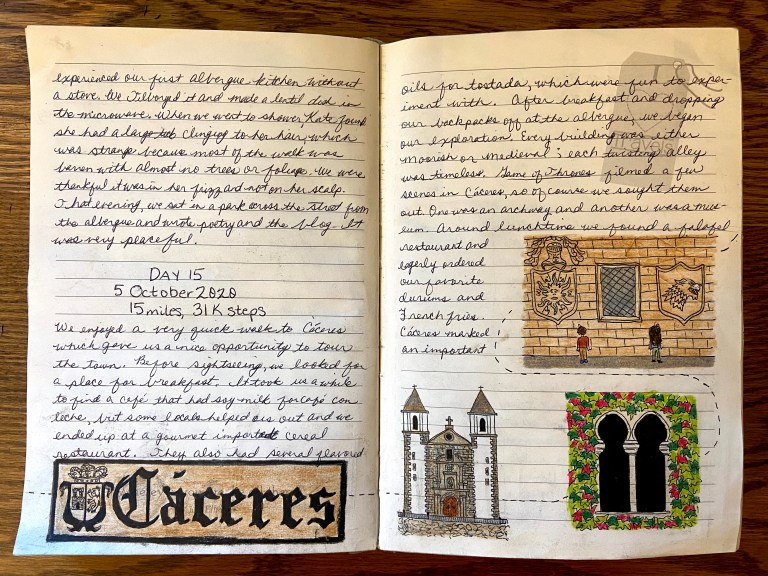 experienced our first albergue kitchen without
a stove. We Tilvorged it and made a lentil dish in
the microwave. When we went to shower, Kate found
she had a large tick clinging to her hair, which
was strange because most of the walk was
barren with almost no trees or foliage. We were
thankful it was in her frizz and not on her scalp.
That evening, we sat in a park across the street from
the albergue and wrote poetry and the blog. It
was very peaceful.
DAY 15
5 October 2020
15 miles, 31K steps
We enjoyed a very quick walk to Cáceres
which gave us a nice opportunity to tour
the town. Before sightseeing, we looked for
a place for breakfast. It took us a while
to find a café that had soy milk for café con
leche, but some locals helped us out and we
ended up at a gourmet imported cereal
restaurant. They also had several flavored
Cáceres
oils for tostada, which were fun to exper-
iment with. After breakfast and dropping
our backpacks off at the albergue, we began
our exploration. Every building was either
moorish or medieval & each twisting alley
was timeless. Game of Thrones filmed a few
scenes in Cáceres, so of course we sought them
out. One was an archway and another was a mus-
eum. Around lunchtime we found a falafel
restaurant and
eagerly ordered
our favorite
durums and
French fries.
Cáceres marked
an important
Travels